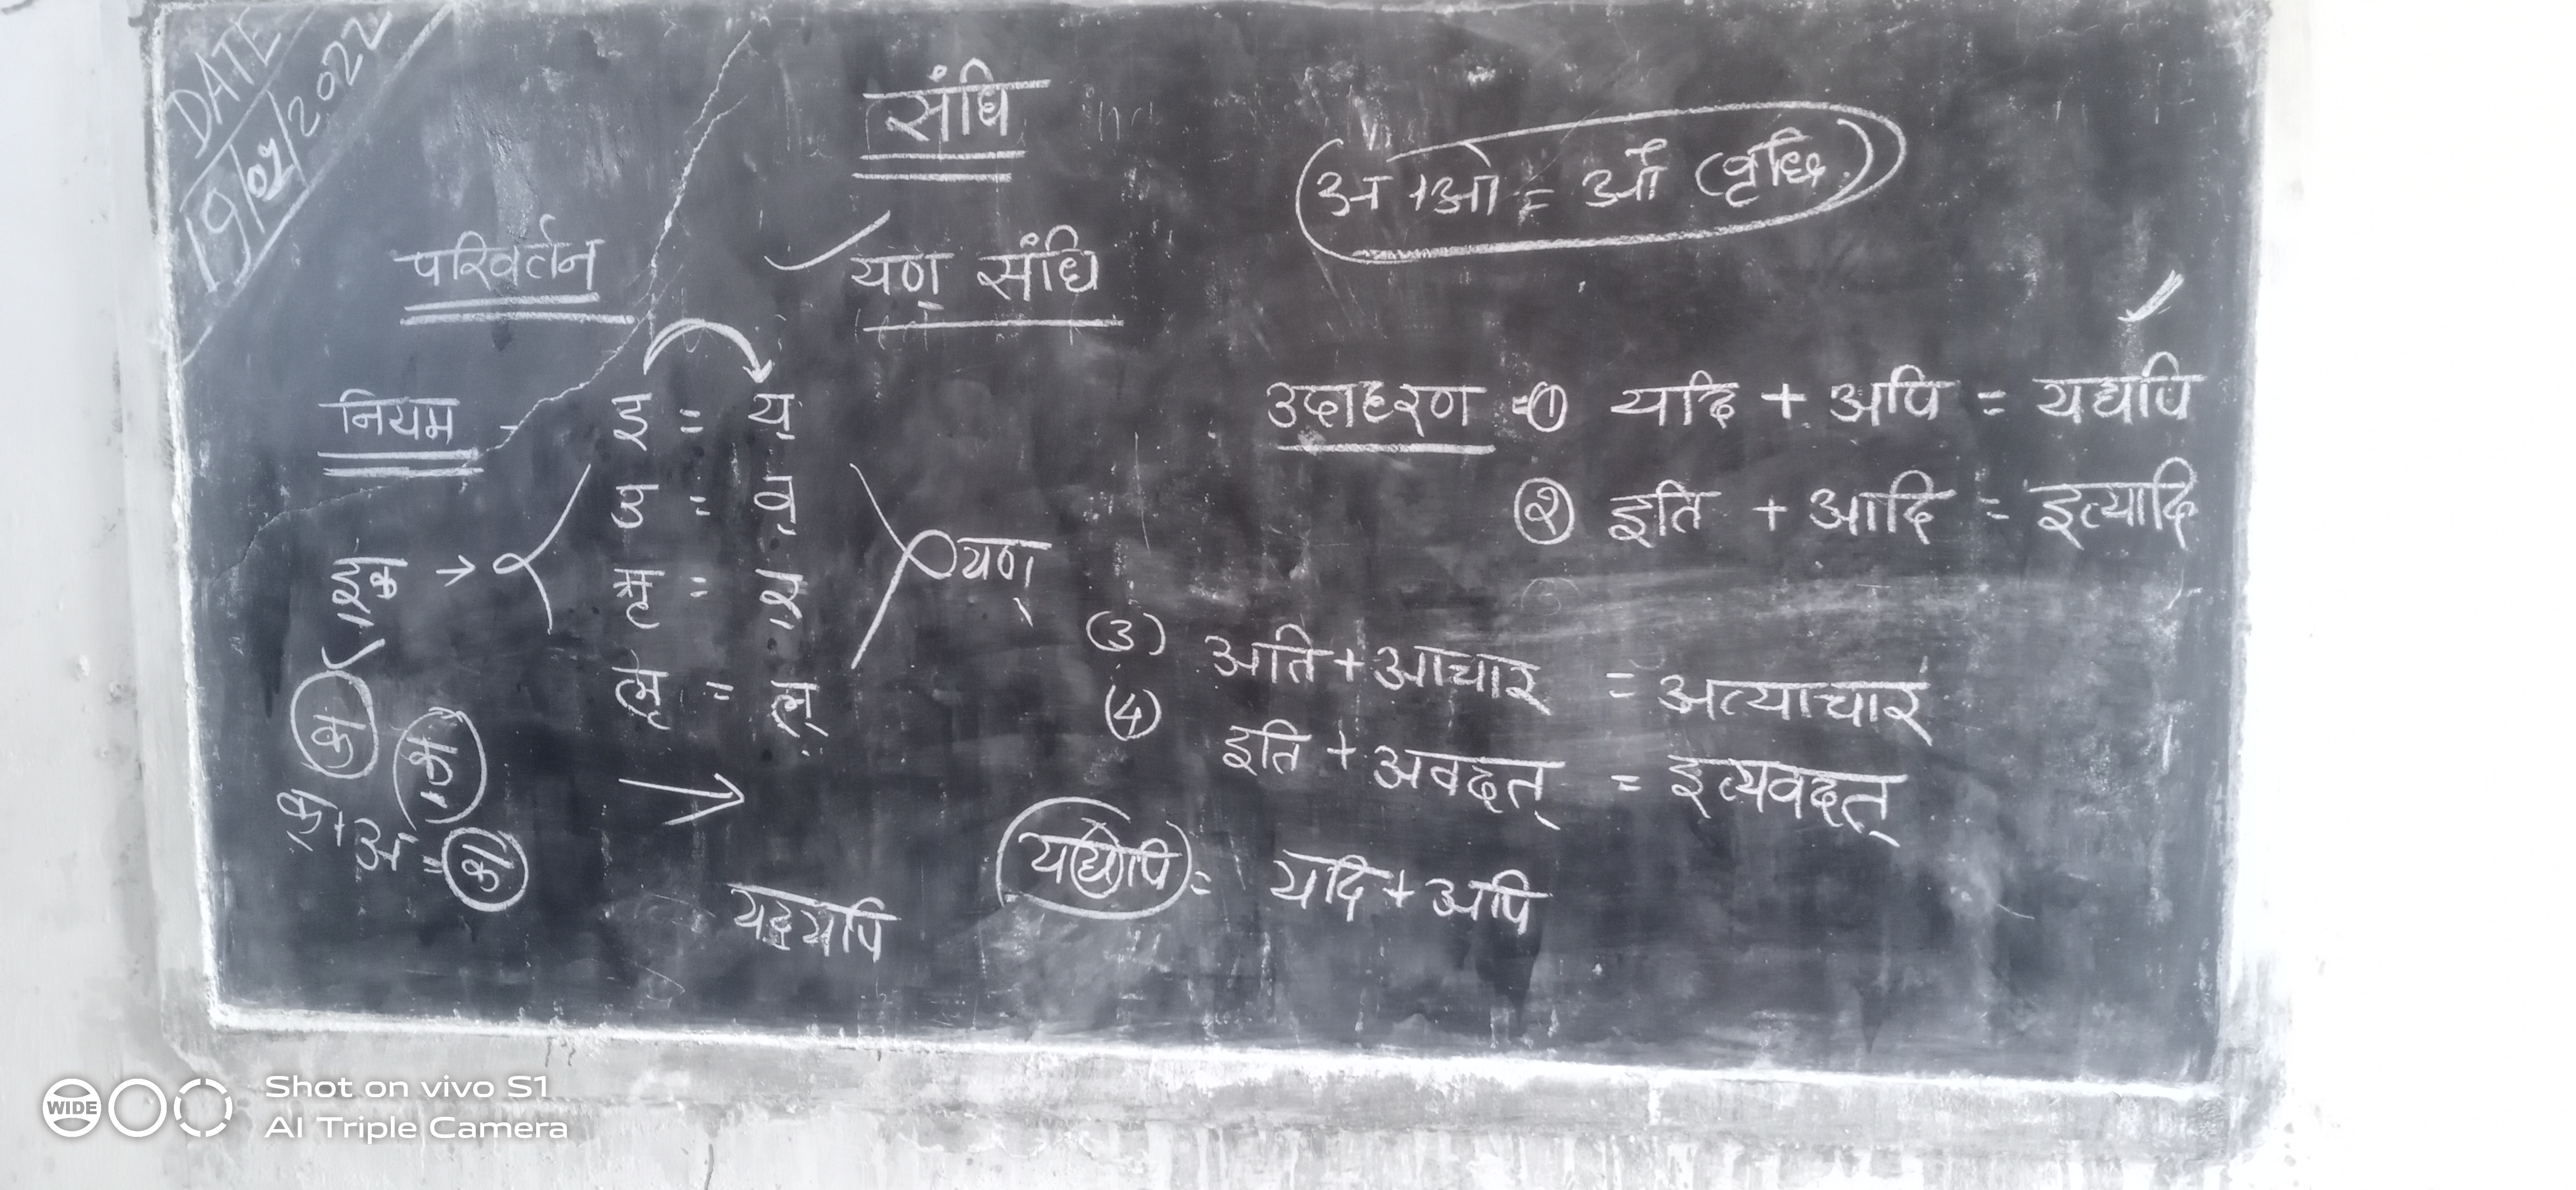 DATE
19/02/2022
संधि
अ + ओ = औ (वृद्धि)
परिवर्तन
यण् संधि
नियम -
इ = य्
उ = व्
ऋ = र्
लृ = ल्
इक् →
यण्
उदाहरण = ① यदि + अपि = यद्यपि
② इति + आदि = इत्यादि
(3) अति + आचार = अत्याचार
(4) इति + अवदत् = इत्यवदत्
क क्
क् + अ = क
यद्यपि = यदि + अपि
यद्यपि
WIDE
Shot on vivo S1
AI Triple Camera